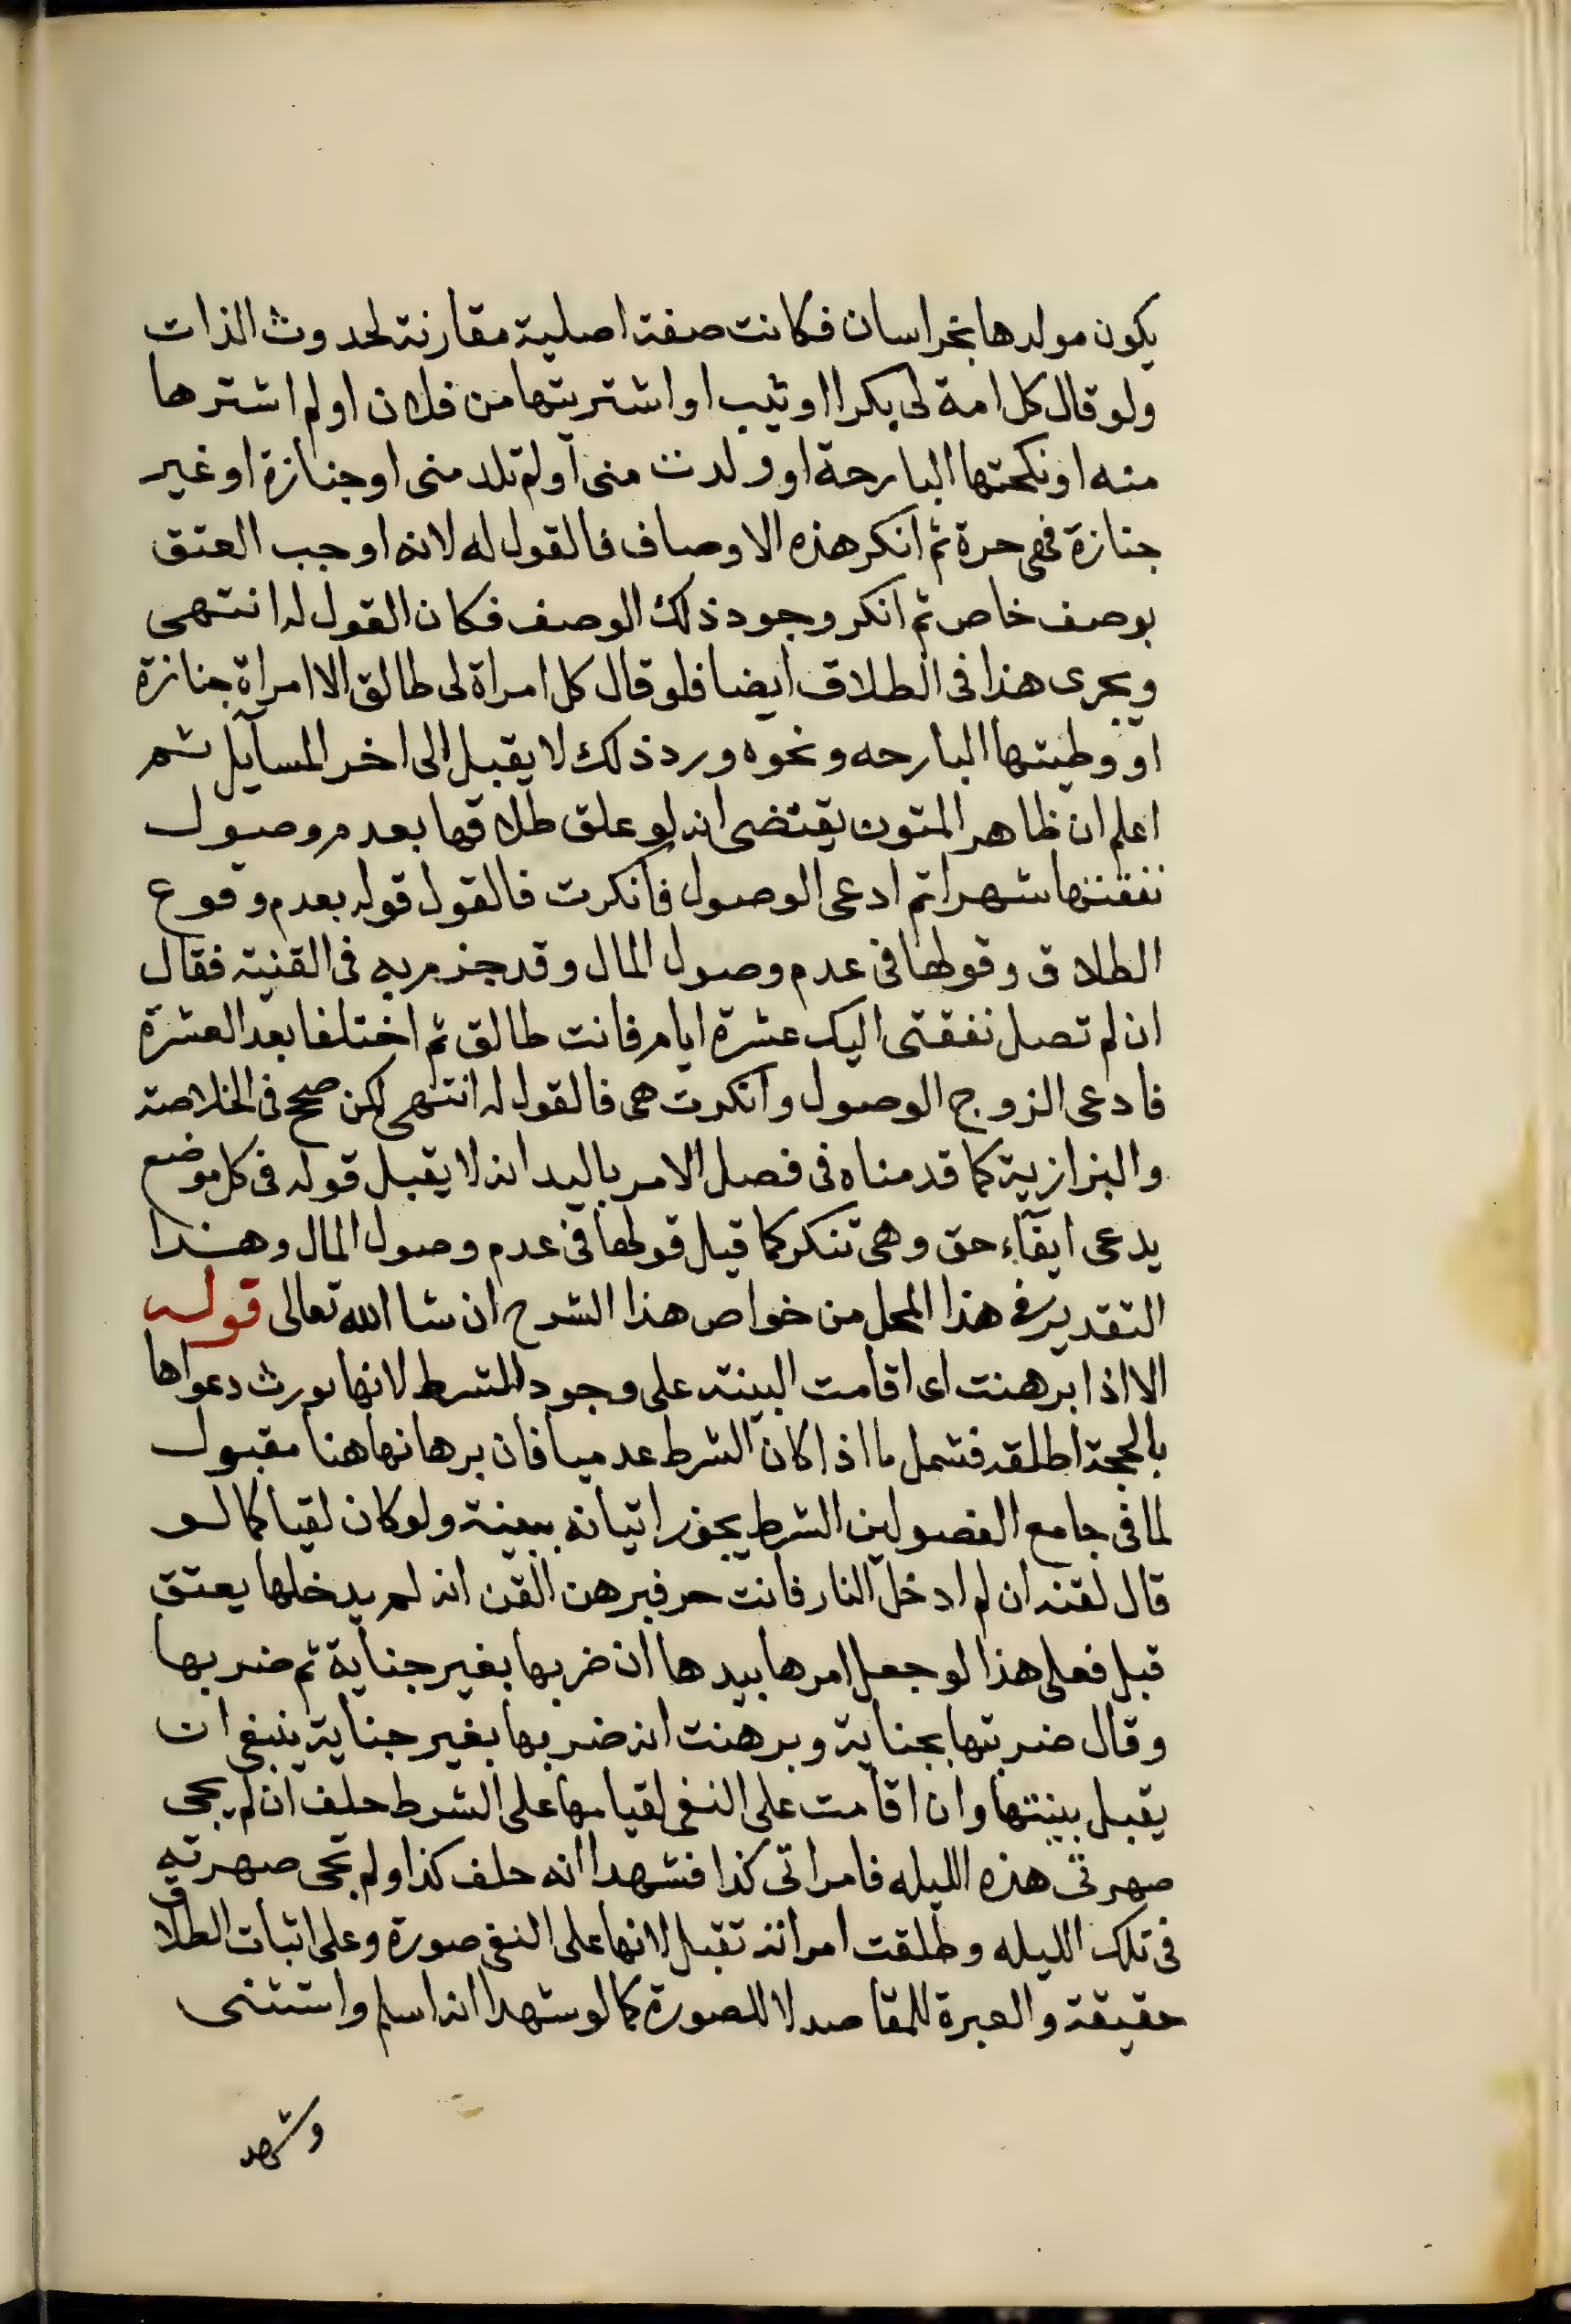 يكون مولدها بخراسان فكانت صفة اصلية مقارنة لحدوث الذات
ولو قال كل امة لى بكرا او ثيب او اشتريتها من فلان او لم اشترها
منه او نكحتها البارحة او ولدت منى او لم تلد منى او جنازة او غير
جنازة فهى حرة ثم انكر هذه الاوصاف فالقول له لانه اوجب العتق
بوصف خاص ثم انكر وجود ذلك الوصف فكان القول له انتهى
ويجرى هذا فى الطلاق ايضا فلو قال كل امراة لى طالق الا امراة جنازة
او وطيتها البارحه ونحوه ورد ذلك لا يقبل الى اخر المسآيل ثم
اعلم ان ظاهر المتون يقتضى انه لو علق طلاقها بعدم وصول
نفقتها شهرا ثم ادعى الوصول فانكرت فالقول قوله بعدم وقوع
الطلاق وقولها فى عدم وصول المال وقد جزم به فى القنية فقال
ان لم تصل نفقتى اليك عشرة ايام فانت طالق ثم اختلفا بعد العشرة
فادعى الزوج الوصول وانكرت هى فالقول له انتهى لكن صحح فى الخلاصة
والبزازية كما قدمناه فى فصل الامر باليد انه لا يقبل قوله فى كل موضع
يدعى ايفآء حق وهى تنكر كما قبل قولها فى عدم وصول المال وهذا
التقدير فى هذا المحل من خواص هذا الشرح ان شا الله تعالى قوله
الا اذا برهنت اى اقامت البينة على وجود الشرط لانها نورث دعواها
بالحجة اطلقه فشمل ما اذا كان الشرط عدميا فان برهانها هنا مقبول
لما فى جامع الفصولين الشرط يجوز اتيانه ببينة ولو كان نفيا كما لو
قال لقنه ان لم ادخل الدار فانت حر فبرهن القن انه لم يدخلها يعتق
قبل فعلى هذا لو جعل امرها بيدها ان ضربها بغير جناية ثم ضربها
وقال ضربتها بجناية وبرهنت انه ضربها بغير جناية ينبغى ان
يقبل بينتها وان اقامت على النفى لقيامها على الشرط حلف ان لم يجى
صهرتى هذه الليله فامراتى كذا فشهدا انه حلف كذا ولم تجى صهرته
فى تلك الليله وطلقت امراته تقبل لانها على النفى صورة وعلى اثبات الطلاق
حقيقة والعبرة للمقاصد لا للصورة كما لو شهدا انه اسلم واستثنى
وشهد